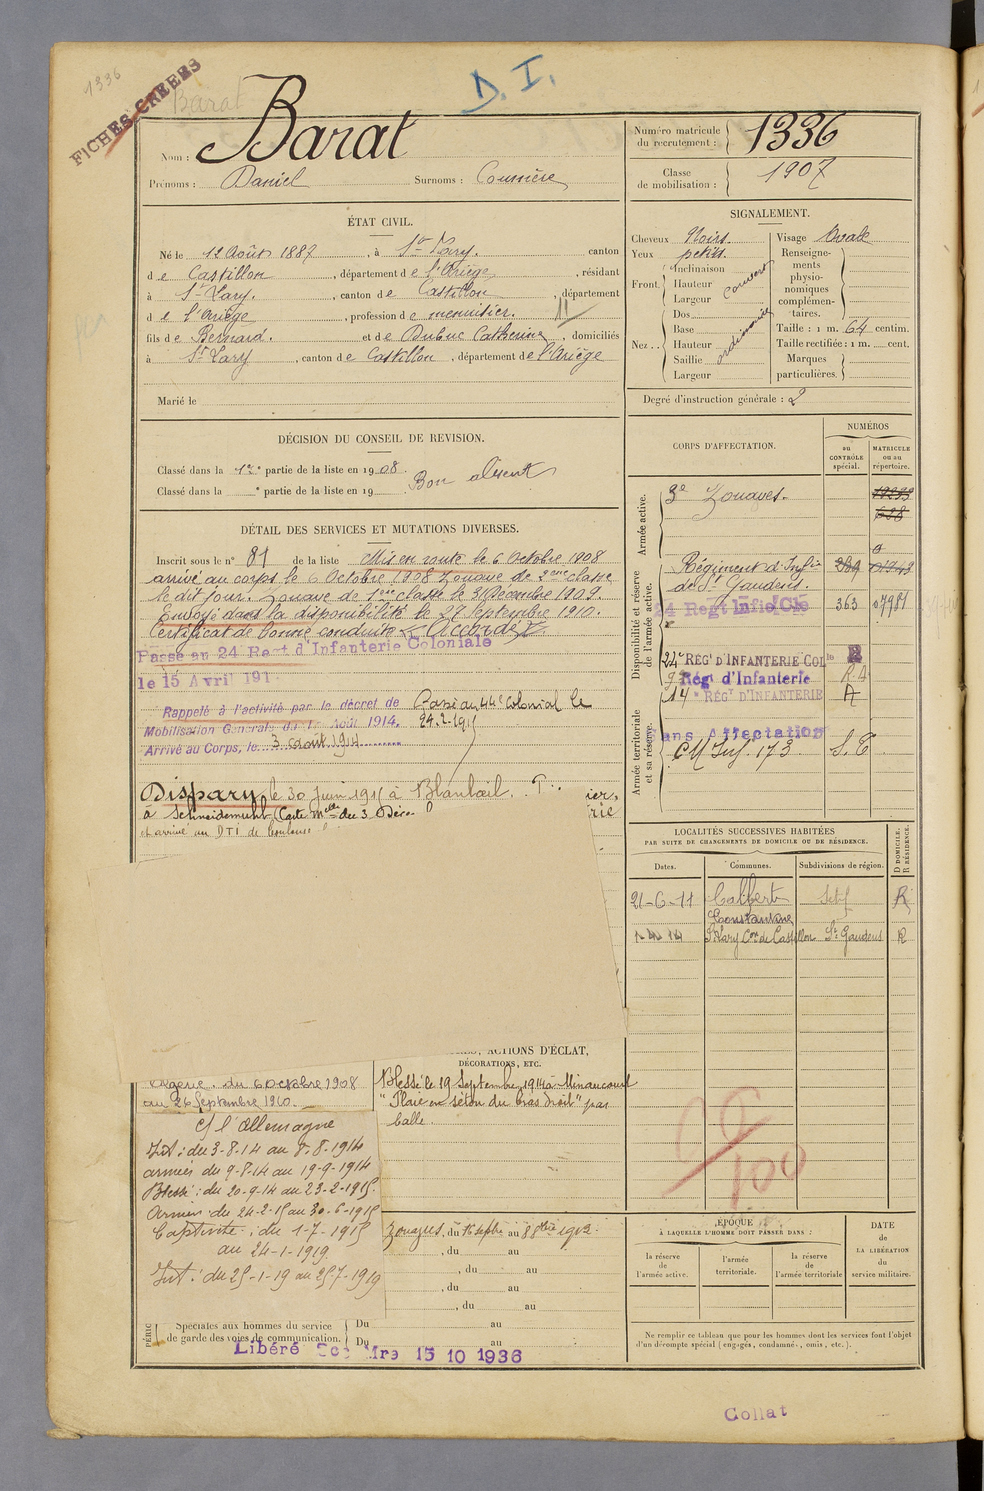 1336
FICHES CREEES
Barat
D. I.
Nom : Barat
Prénoms : Daniel Surnoms :
Numéro matricule du recrutement : 1336
Classe de mobilisation : 1907
ÉTAT CIVIL.
Né le 12 Août 1887, à St Lary. canton
de Castillon, département de l'Ariège, résidant
à St Lary. , canton de Castillon, département
de l'Ariège, profession de menuisier.
fils de Bernard. et de Dubuc Catherine, domiciliés
à St Lary, canton de Castillon, département de l'Ariège
Marié le
SIGNALEMENT.
Cheveux Noirs.
Yeux petits.
Front. Inclinaison
Hauteur couvert
Largeur
Nez.. Dos
Base
Hauteur ordinaire
Saillie
Largeur
Visage Ovale
Renseignements physionomiques complémentaires.
Taille : 1 m. 64 centim.
Taille rectifiée : 1 m. cent.
Marques particulières.
Degré d'instruction générale : 2
DÉCISION DU CONSEIL DE REVISION.
Classé dans la 1re partie de la liste en 1908. Bon absent
Classé dans la e partie de la liste en 19
DÉTAIL DES SERVICES ET MUTATIONS DIVERSES.
Inscrit sous le n° 81 de la liste Mis en route le 6 Octobre 1908
arrivé au corps le 6 Octobre 1908 Zouave de 2eme classe
le dit jour. Zouave de 1ere classe le 31 Décembre 1909.
Envoyé dans la disponibilité le 27 Septembre 1910.
Certificat de bonne conduite "Accordé".
Passé au 24 Regt d'Infanterie Coloniale
le 15 Avril 191
Rappelé à l'activité par le décret de
Mobilisation Générale du 1er Août 1914.
Arrivé au Corps, le 3 Août 1914
Passé au 44e Colonial le
24.2.15
Disparu le 30 Juin 1915 à
à Schneidemühl (Carte du 3
et arrivé au DTI de Toulouse
CORPS D'AFFECTATION.
NUMÉROS
au CONTRÔLE spécial.
MATRICULE ou au répertoire.
Armée active.
3e Zouaves.
Disponibilité et réserve de l'armée active.
Régiment d'Infie
de St Gaudens.
Regt Infie Cle 363
24e RÉGt D'INFANTERIE COLle
Régt d'Infanterie
14e RÉGt D'INFANTERIE A
Armée territoriale et sa réserve.
ans Affectation
LOCALITÉS SUCCESSIVES HABITÉES
PAR SUITE DE CHANGEMENTS DE DOMICILE OU DE RÉSIDENCE.
Dates. Communes. Subdivisions de région. D DOMICILE. R RÉSIDENCE.
21-6-11 Colbert Sétif R
Constantine
St Lary Con de Castillon St Gaudens R
, ACTIONS D'ÉCLAT,
DÉCORATIONS, ETC.
Algérie. du 6 Octobre 1908
au 26 Septembre 1910.
Blessé le 19 Septembre 1914 à Minaucourt
"Plaie en séton du bras droit" par
balle.
C/ l'Allemagne
Int : du 3-8-14 au 8-8-1914
armées du 9-8-14 au 19-9-1914
Blessé : du 20-9-14 au 23-2-1915.
Armées : du 24-2-15 au 30-6-1915
Captivité : du 1-7-1915
au 24-1-1919.
Int : du 25-1-19 au 25-7-1919
Zouaves, du 16 septbre au 8 8bre 1912.
, du au
, du au
, du au
, du au
Spéciales aux hommes du service
de garde des voies de communication.
Du au
Du au
Libéré Mre 15 10 1936
100
ÉPOQUE
À LAQUELLE L'HOMME DOIT PASSER DANS :
la réserve de l'armée active.
l'armée territoriale.
la réserve de l'armée territoriale
DATE de LA LIBÉRATION du service militaire.
Ne remplir ce tableau que pour les hommes dont les services font l'objet
d'un décompte spécial (engagés, condamnés, omis, etc.).
Collat